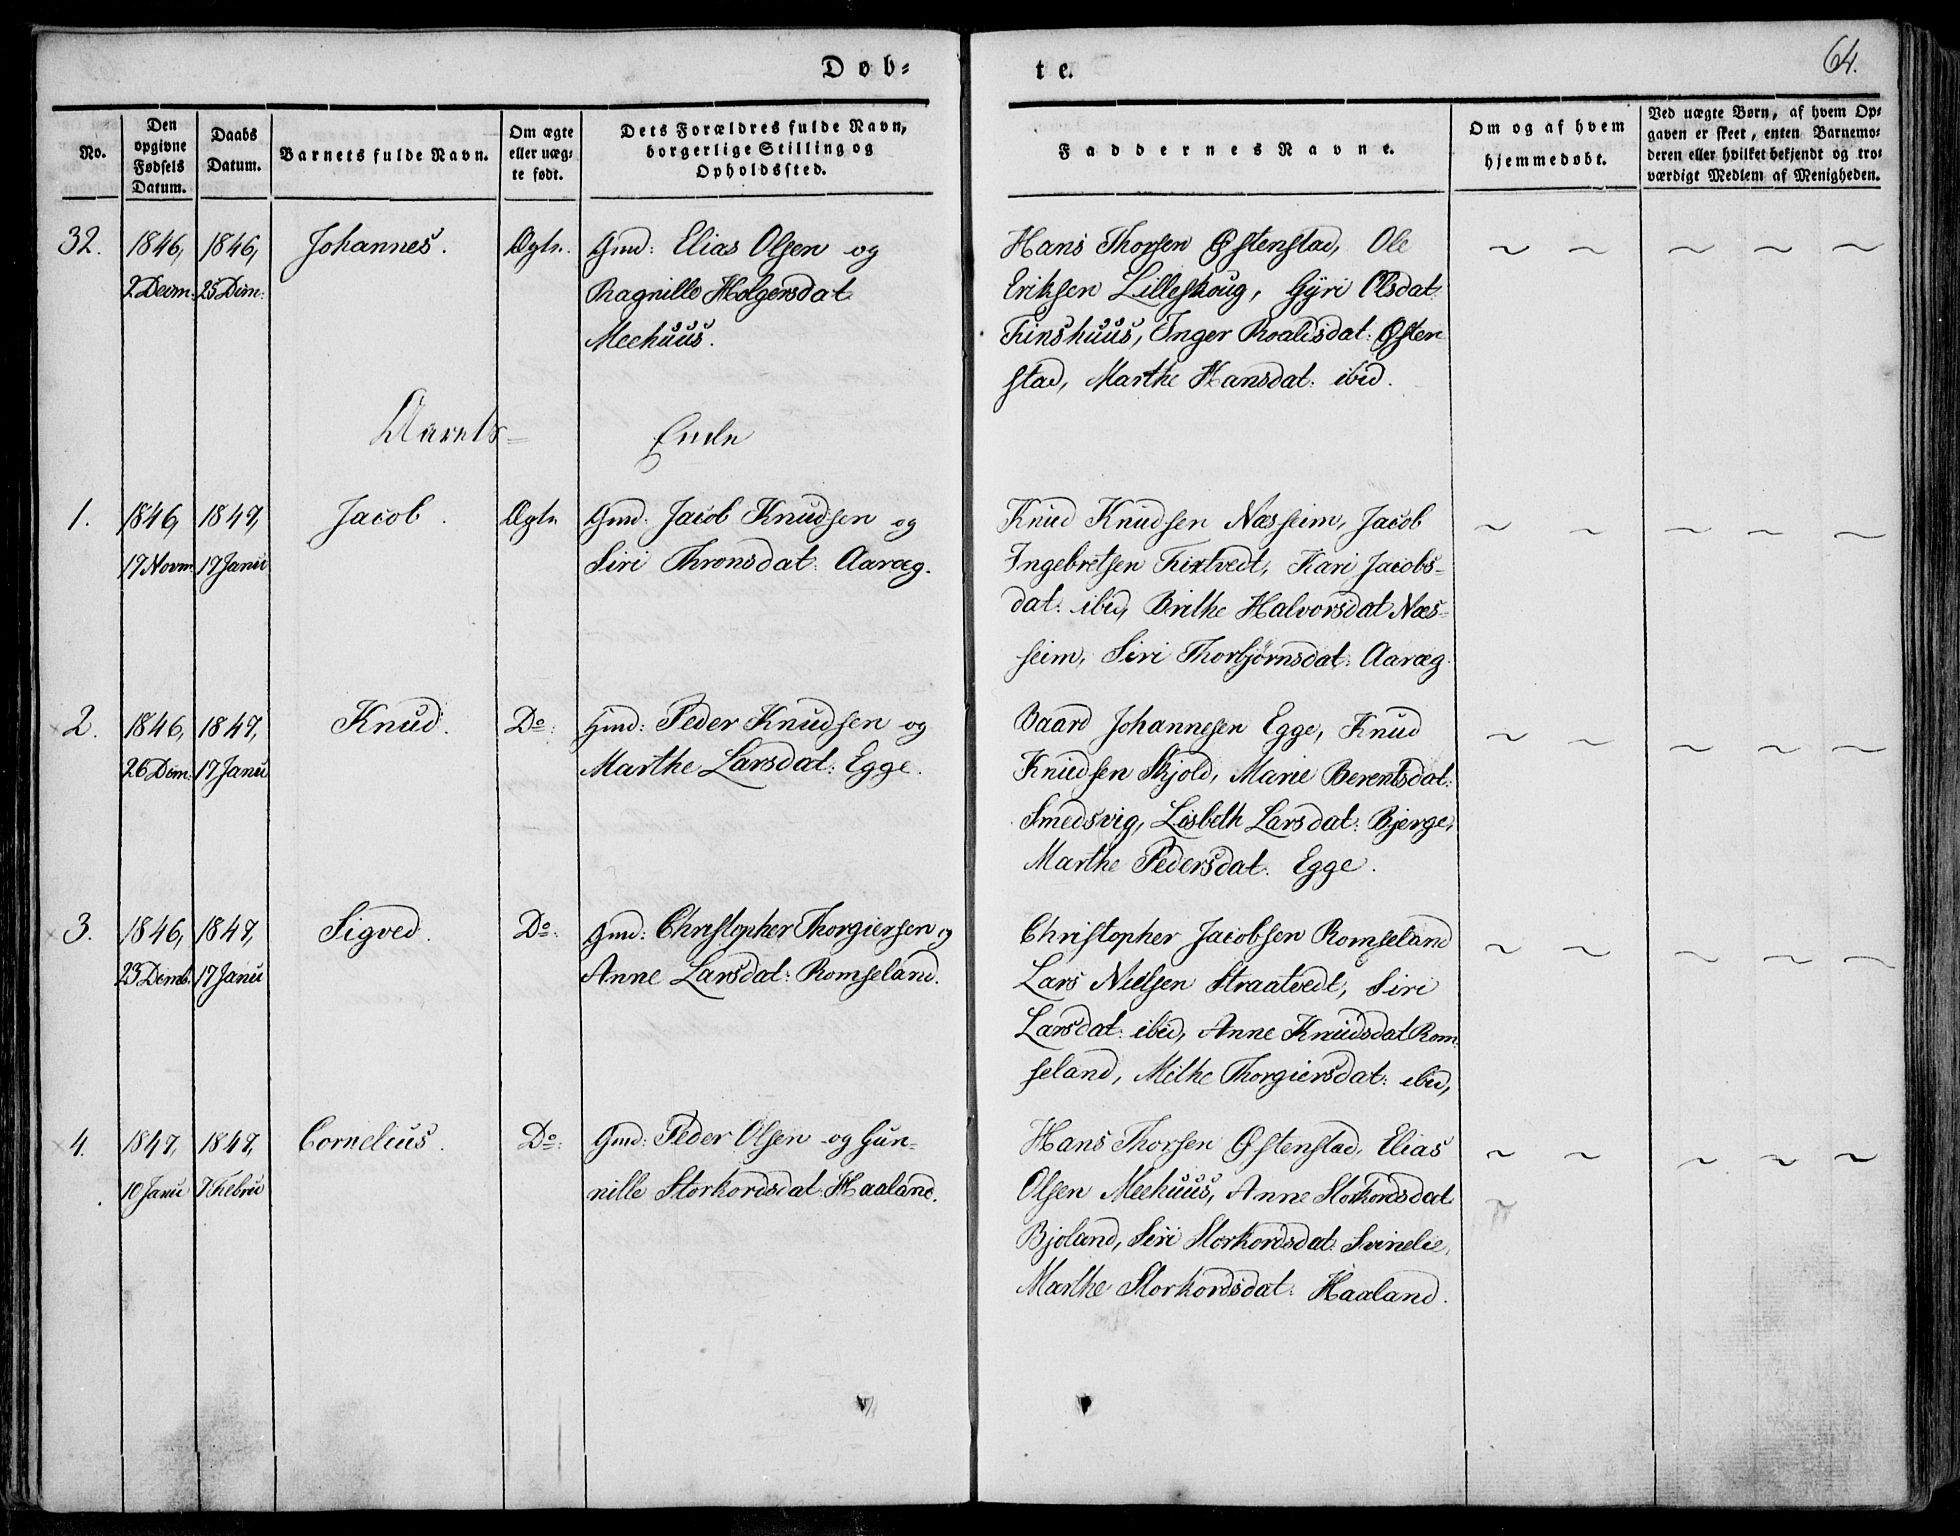 Døb=
te.
64.
No.
Den opgivne Fødsels Datum.
Daabs Datum.
Barnets fulde Navn.
Om ægte eller uæg= te født.
Dets Forældres fulde Navn, borgerlige Stilling og Opholdssted.
Faddernes Navne.
Om og af hvem hjemmedøbt.
Ved uægte Børn, af hvem Op= gaven er skeet, enten Barnemo= deren eller hvilket bekjendt og tro= værdigt Medlem af Menigheden.
32. 1846, 1846, Johannes. Ægte. Gmd: Elias Olsen og
2 Decm: 25 Dcm: Ragnille Holgersdat
Meehuus.
Hans Thorsen Østenstad, Ole
Eriksen Lilleskoug, Gyri Olsdat:
Finshuus, Inger Roaldsdat: Østen
stad, Marthe Hansdat: ibid.
Aarets= Ende
1. 1846, 1847, Jacob. Ægte Gmd. Jacob Knudsen og
19 Novm. 17 Janu Siri Thronsdat: Aaræg.
Knud Knudsen Næsseim, Jacob
Ingebretsen Tixtvedt, Kari Jacobs=
dat: ibid, Brithe Halvorsdat Næs=
seim, Siri Thorbjørnsdat: Aaræg.
2. 1846, 1847, Knud. Do: Gmd: Peder Knudsen og
26 Dcm: 17 Janu Marthe Larsdat: Egge.
Baard Johannesen Egge, Knud
Knudsen Skjold, Marie Berentsdat:
Smedsvig, Lisbeth Larsdat: Bjerge,
Marthe Pedersdat. Egge.
3. 1846, 1847, Sigved. Do: Gmd: Christopher Thorgiersen og
23 Decmb. 17 Janu Anne Larsdat: Romseland.
Christopher Jacobsen Romseland
Lars Nielsen Straatvedt, Siri
Larsdat: ibid, Anne Knudsdat Rom=
seland, Methe Thorgiersdat: ibid,
4. 1847, 1847, Cornelius. Do: Gmd: Peder Olsen og Gun=
10 Janu 7 Febru nille Storkordsdat: Haaland.
Hans Thorsen Østenstad, Elias
Olsen Meehuus, Anne Storkordsdat
Bjoland, Siri Storkordsdat: Svinelie,
Marthe Storkordsdat: Haaland.